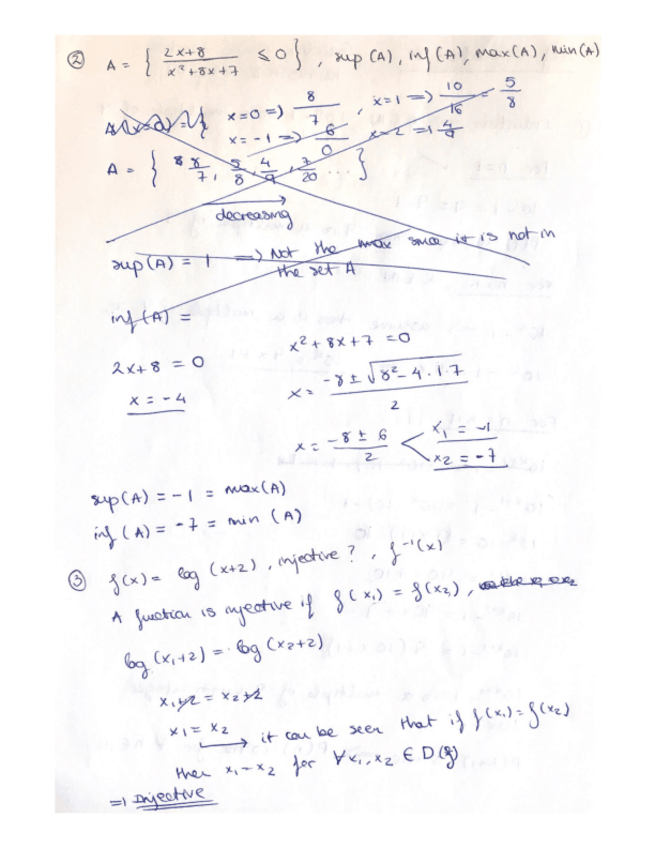 ② A = { 2x+8 / x²+8x+7 ≤ 0 } , sup (A), inf (A), max (A), min (A)
x=0 => 8/7 , x=1 => 10/16 = 5/8
x=-1 => 6/0
A = { 8/7, 5/8, 4/9, 7/20 }
decreasing
sup (A) = 1 => Not the max since it is not in
the set A
inf (A) =
x² + 8x + 7 = 0
2x + 8 = 0
x = -8 ± √8² - 4·1·7 / 2
x = -4
x = -8 ± 6 / 2 < x₁ = -1
x₂ = -7
sup (A) = -1 = max (A)
inf (A) = -7 = min (A)
③ f(x) = log (x+2) , injective ? , f⁻¹(x)
A function is injective if f(x₁) = f(x₂) ,
log (x₁+2) = log (x₂+2)
x₁+2 = x₂+2
x₁ = x₂
→ it can be seen that if f(x₁) = f(x₂)
then x₁ = x₂ for ∀x₁, x₂ ∈ D(f)
=> Injective